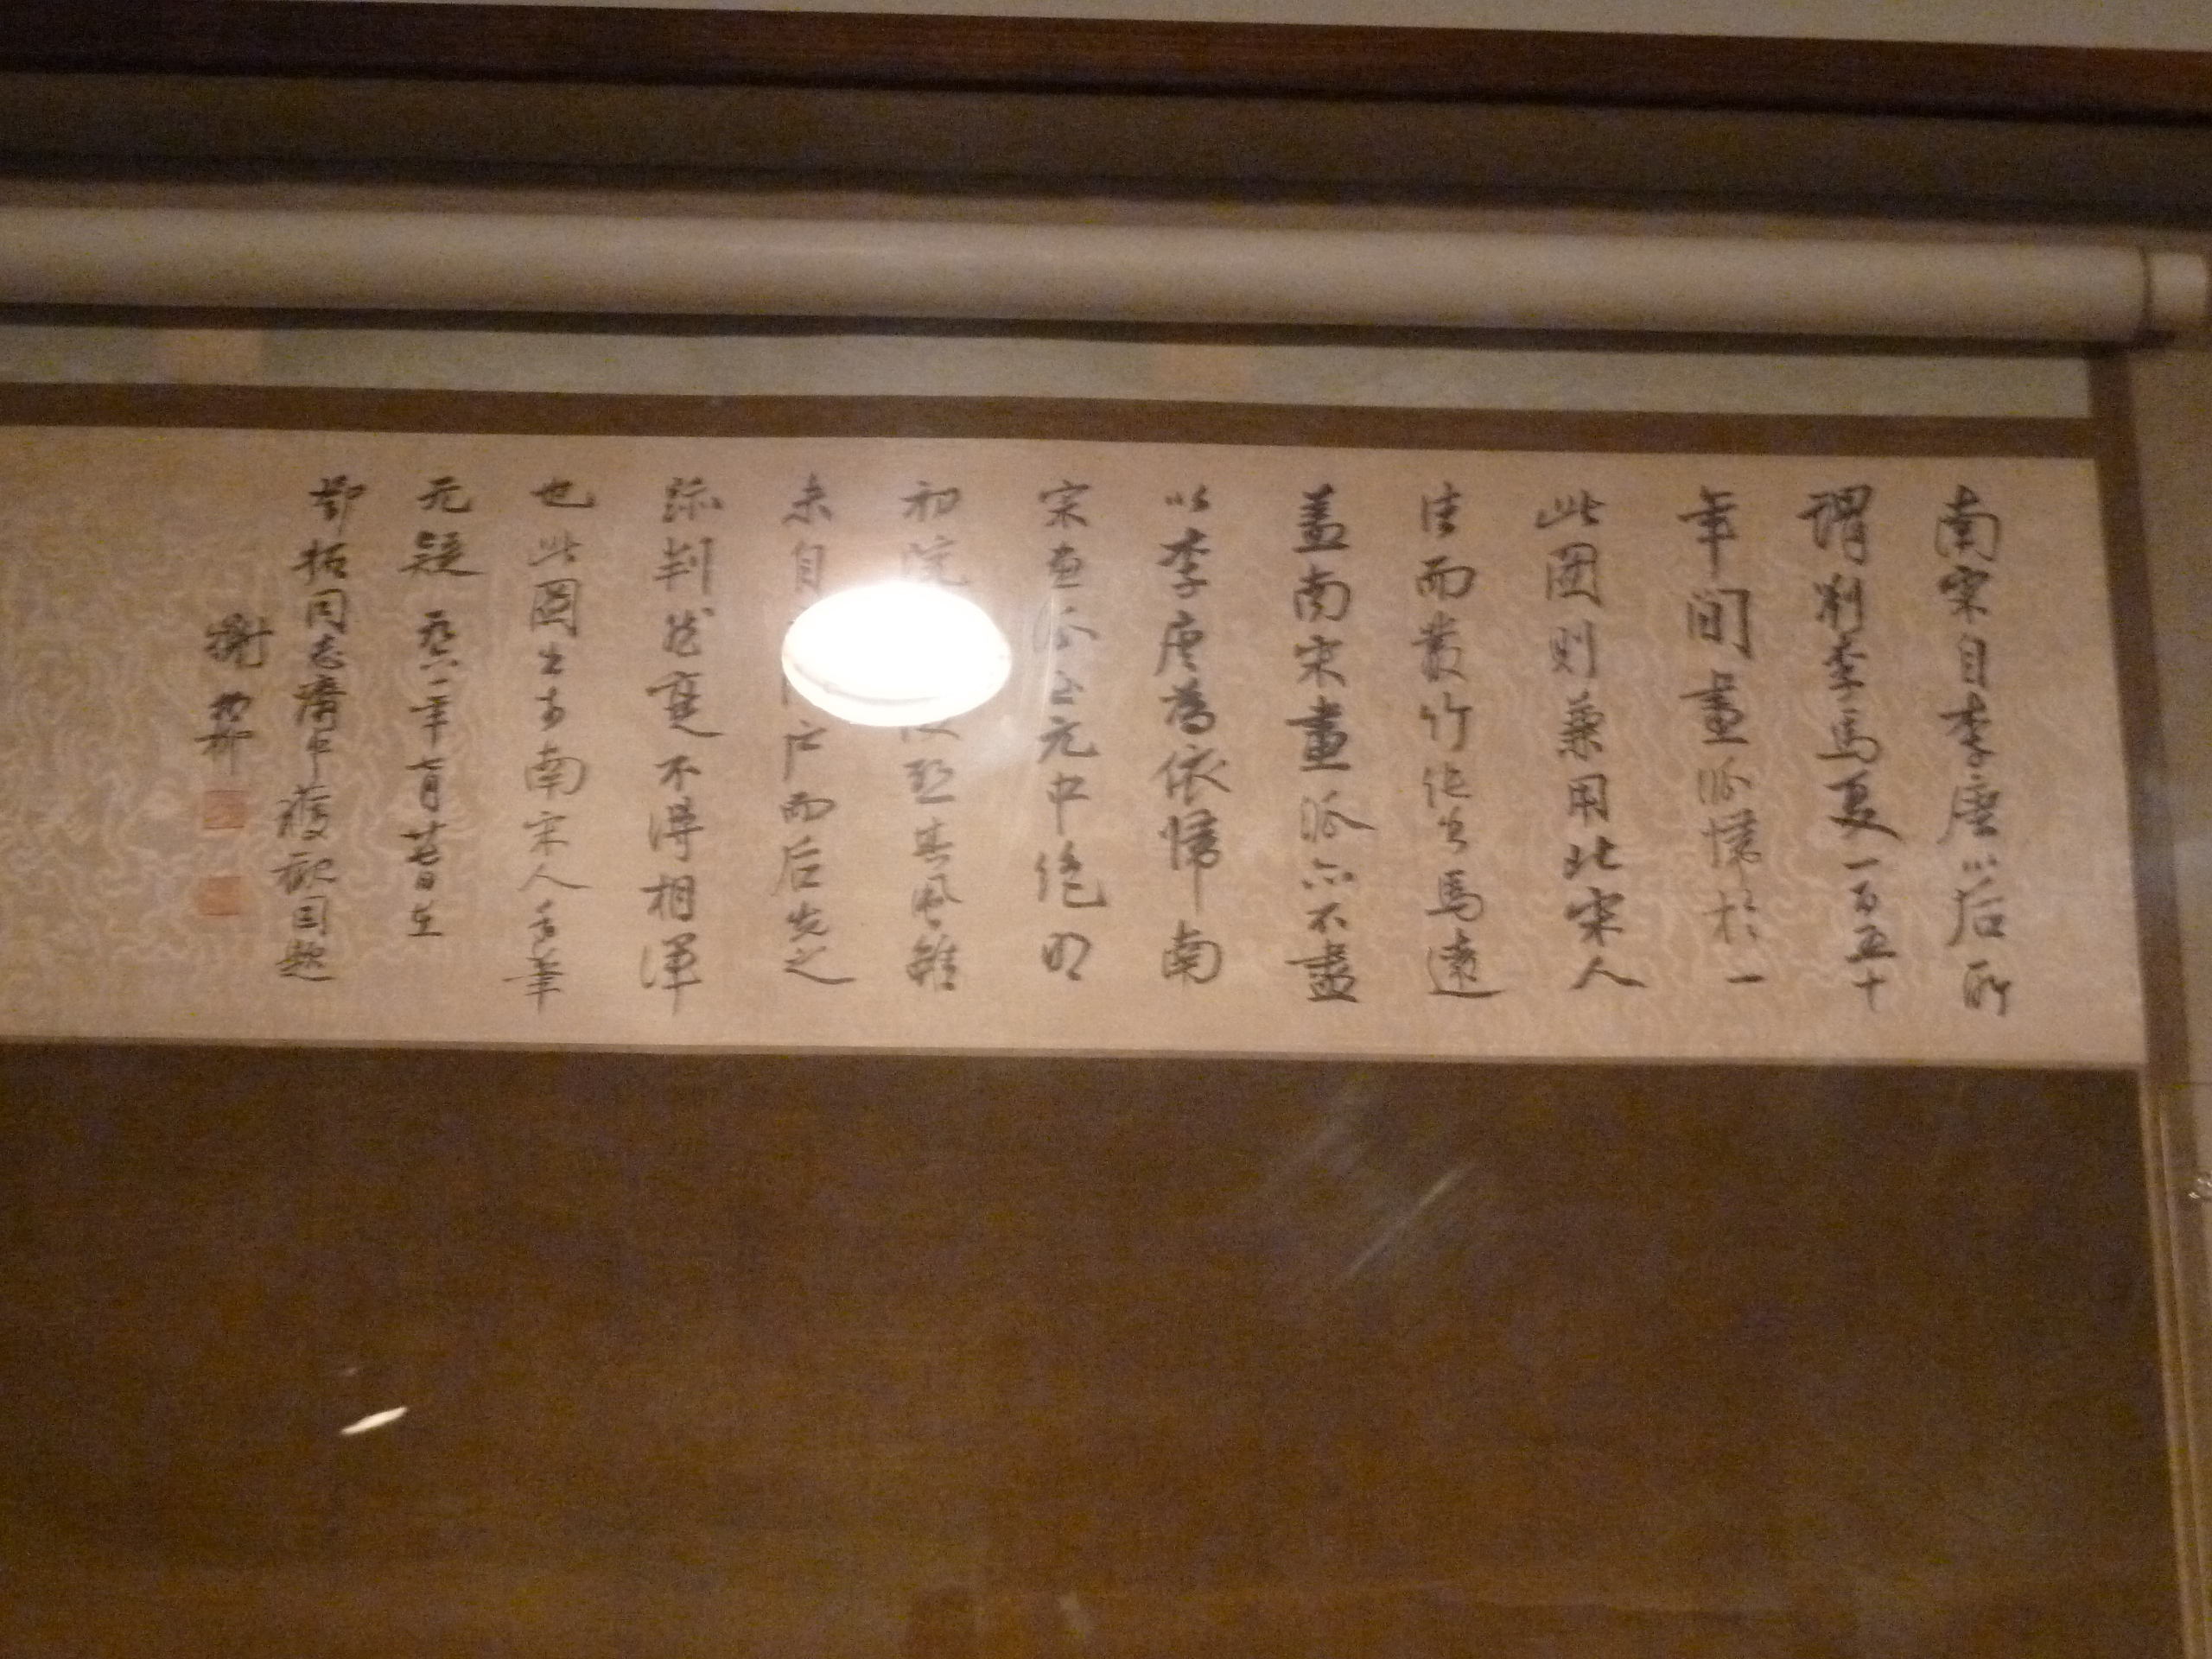 南宋自李唐以后所
謂劉李馬夏一百五十
年間畫派惟於一
此图則兼用北宋人
法而叢竹作出馬遠
盖南宋畫派亦不盡
以李唐為依歸南
宋画派至元中絶明
初院 起其風雖
未自 广而后先之
迹判然爰不得相渾
也此圖出於南宋人手筆
无疑 一九六一年七月廿七日在
鄧拓同志齋中獲觀因題
謝稚柳